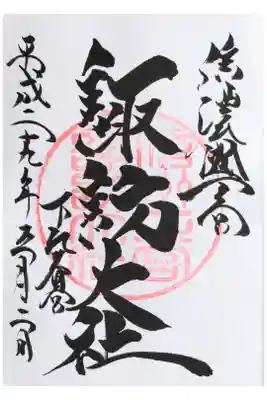 信濃國一宮
諏訪大社
下社春宮
平成二十九年五月二日